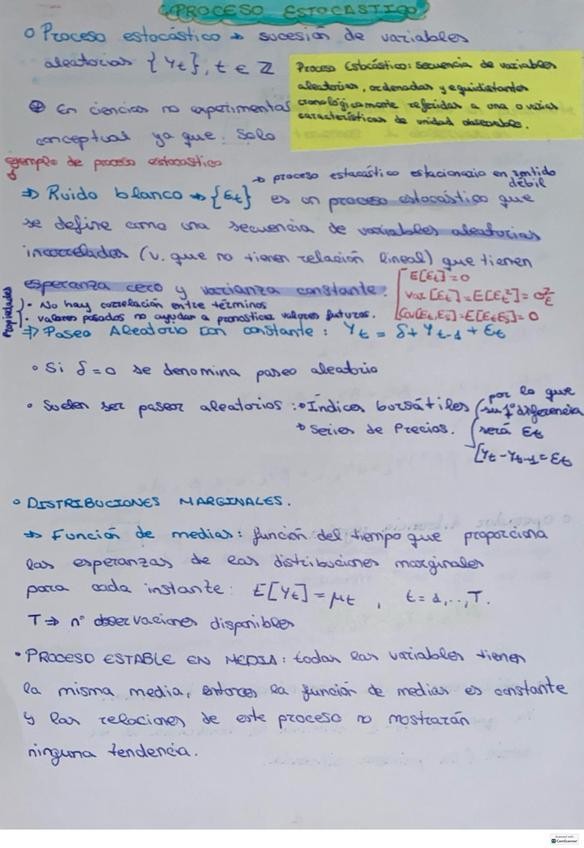 PROCESO ESTOCASTICO
Proceso estocástico → sucesión de variables
aleatorias {Yt}, t ∈ Z
Proceso Estocástico: secuencia de variables
aleatorias, ordenadas y equidistantes
cronológicamente referidas a una o varias
características de unidad observable.
En ciencias no experimentas
conceptual ya que solo
ejemplo de proceso estocastico
→ proceso estocástico estacionario en sentido
débil
⇒ Ruido blanco → {Et} es un proceso estocástico que
se define como una secuencia de variables aleatorias
incorreladas (v. que no tienen relación lineal) que tienen
esperanza cero y varianza constante.
E[Et] = 0
Var[Et] = E[Et²] = σ²E
Cov[Et,Es] = E[EtEs] = 0
Propiedades
• No hay correlación entre términos
• valores pasados no ayudan a pronosticar valores futuros.
⇒ Paseo Aleatorio con constante: Yt = δ + Yt-1 + Et
• Si δ=0 se denomina paseo aleatorio
• Suelen ser paseos aleatorios: • Índices bursátiles
• Series de Precios.
por lo que
su 1ª diferencia
será Et
[Yt - Yt-1 = Et
• DISTRIBUCIONES MARGINALES.
⇒ Función de medias: función del tiempo que proporciona
las esperanzas de las distribuciones marginales
para cada instante: E[Yt] = μt, t = 1,..,T.
T ⇒ nº observaciones disponibles
• PROCESO ESTABLE EN MEDIA: todas las variables tienen
la misma media, entonces la función de medias es constante
y las relaciones de este proceso no mostrarán
ninguna tendencia.
CamScanner